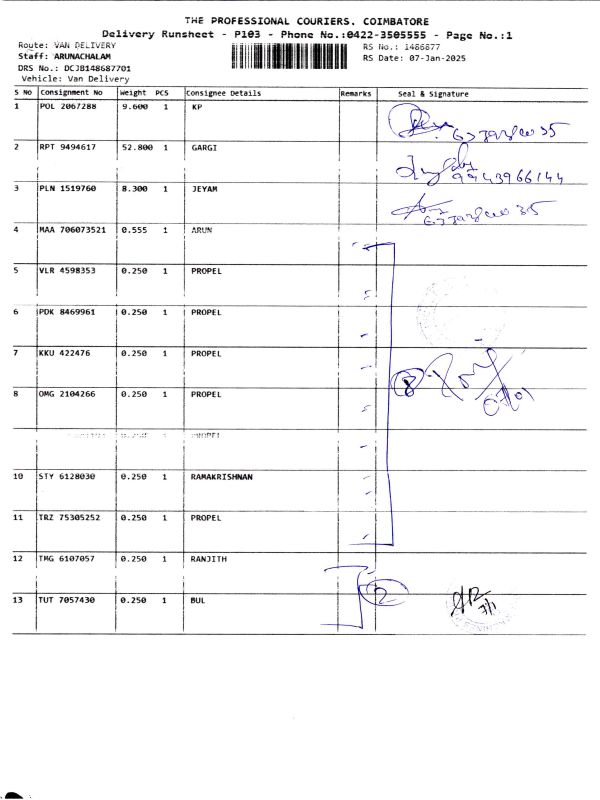 THE PROFESSIONAL COURIERS. COIMBATORE
Delivery Runsheet - P103 - Phone No.:0422-3505555 - Page No.:1
Route: VAN DELIVERY
RS No.: 1486877
Staff: ARUNACHALAM
RS Date: 07-Jan-2025
DRS No.: DCJB148687701
Vehicle: Van Delivery
S NO Consignment No Weight PCS Consignee Details Remarks Seal & Signature
1 POL 2067288 9.600 1 KP
2 RPT 9494617 52.800 1 GARGI
9943966144
3 PLN 1519760 8.300 1 JEYAM
4 MAA 706073521 0.555 1 ARUN
5 VLR 4598353 0.250 1 PROPEL
6 PDK 8469961 0.250 1 PROPEL
7 KKU 422476 0.250 1 PROPEL
8 OMG 2104266 0.250 1 PROPEL
8
PROPEL
10 STY 6128030 0.250 1 RAMAKRISHNAN
11 TRZ 75305252 0.250 1 PROPEL
12 TMG 6107057 0.250 1 RANJITH
2
13 TUT 7057430 0.250 1 BUL
7/1